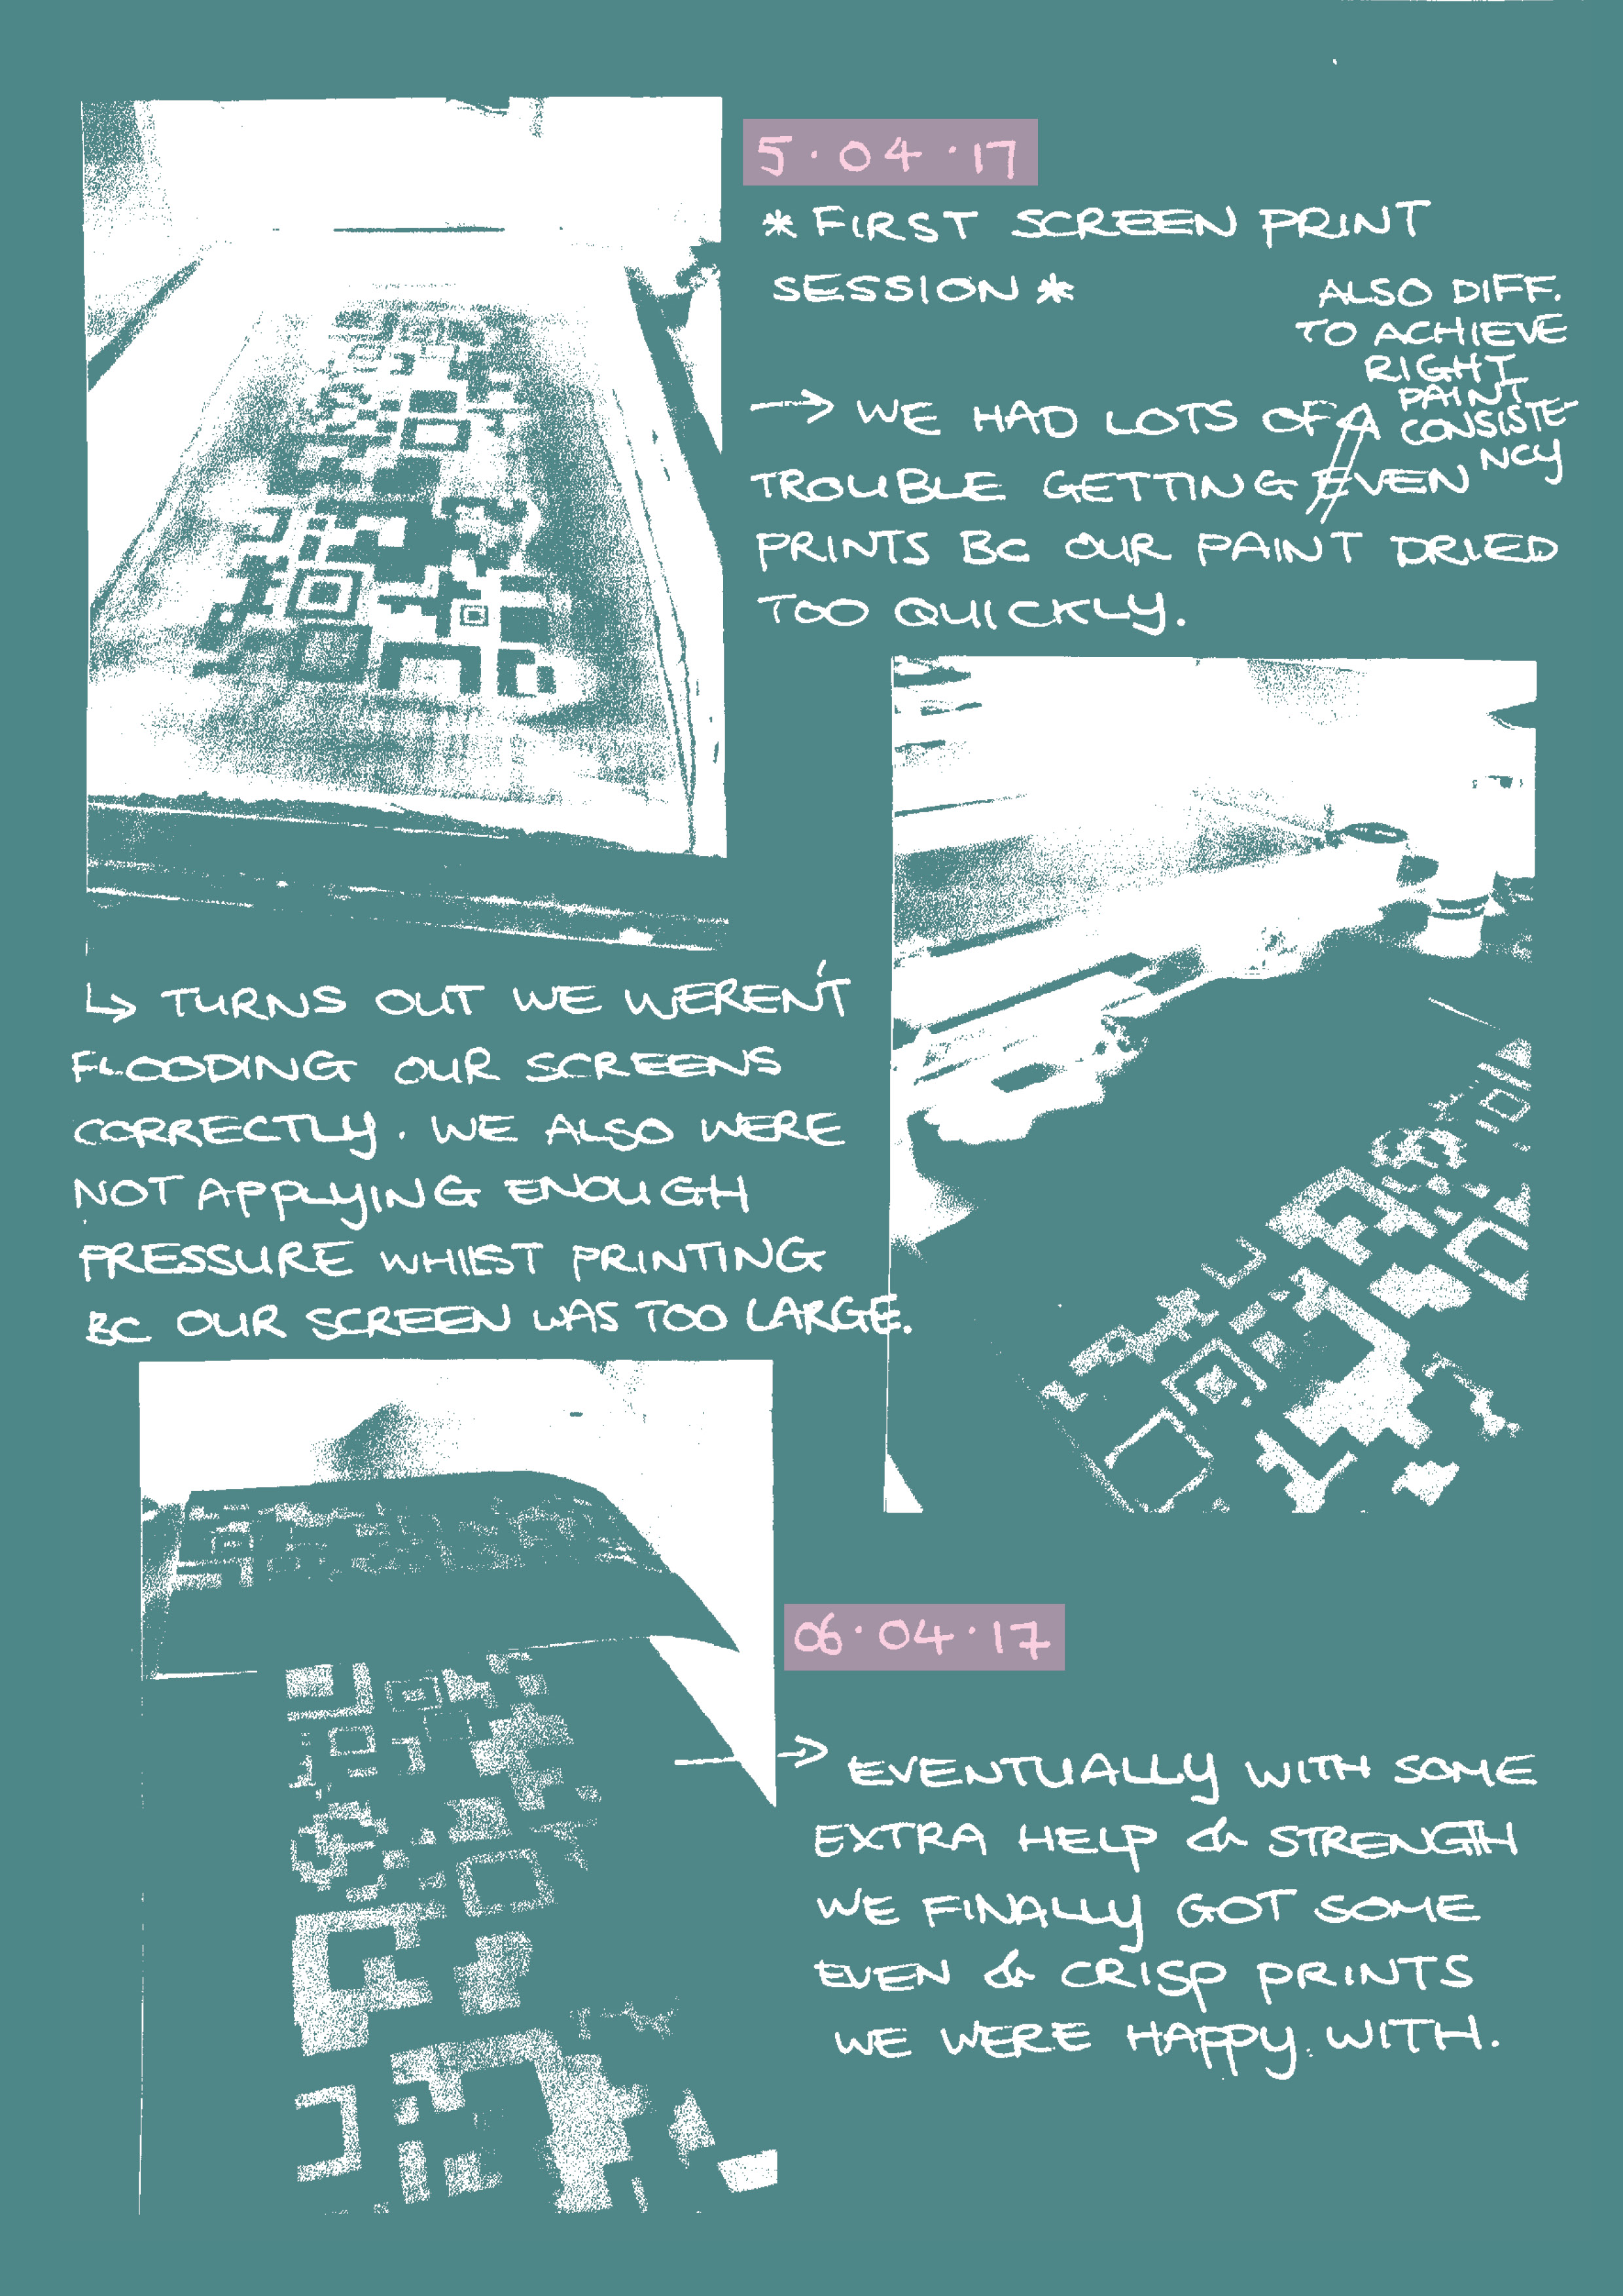 5·04·17
* FIRST SCREEN PRINT
SESSION *
ALSO DIFF.
TO ACHIEVE
RIGHT
PAINT
CONSISTE-
NCY
→ WE HAD LOTS OF
TROUBLE GETTING EVEN
PRINTS BC OUR PAINT DRIED
TOO QUICKLY.
↳ TURNS OUT WE WEREN'T
FLOODING OUR SCREENS
CORRECTLY. WE ALSO WERE
NOT APPLYING ENOUGH
PRESSURE WHILST PRINTING
BC OUR SCREEN WAS TOO LARGE.
06·04·17
→ EVENTUALLY WITH SOME
EXTRA HELP & STRENGTH
WE FINALLY GOT SOME
EVEN & CRISP PRINTS
WE WERE HAPPY WITH.